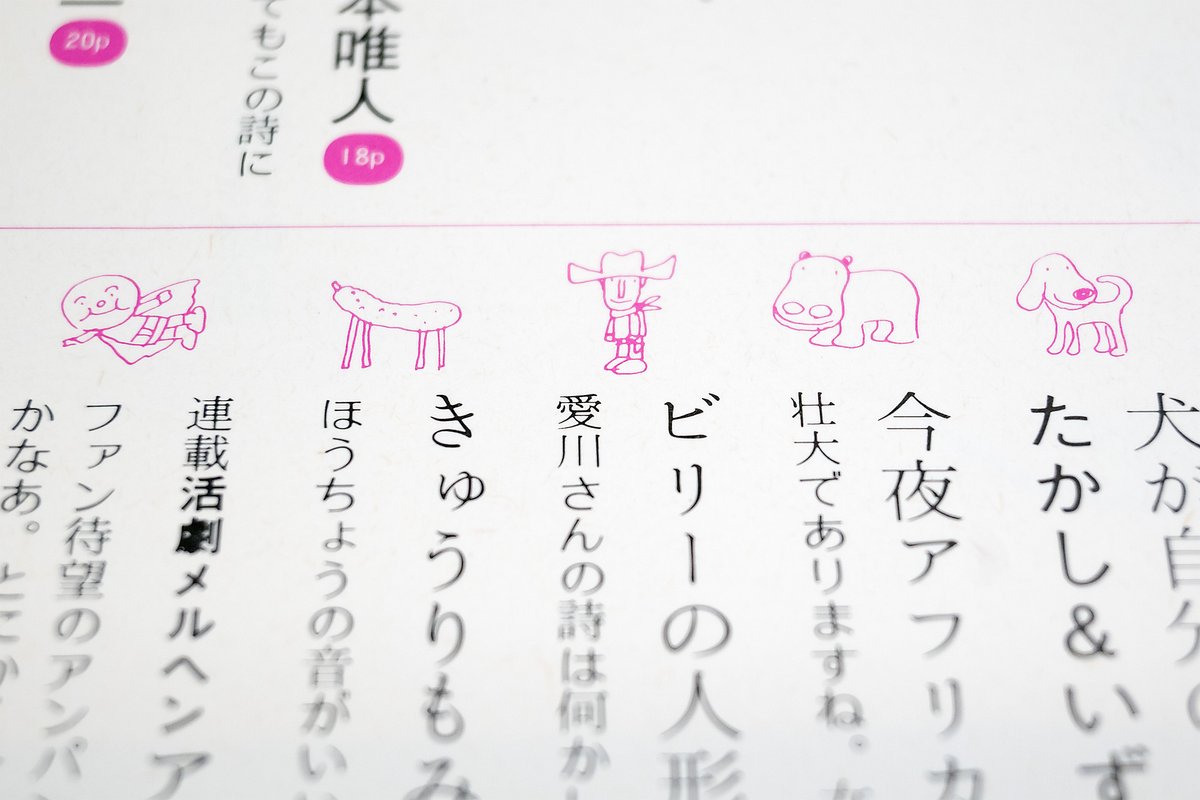 唯人
18p
てもこの詩に
20p
犬が自分
たかし&いず
今夜アフリカ
壮大でありますね。
ビリーの人形
愛川さんの詩は何か
きゅうりもみ
ほうちょうの音がい
連載活劇メルヘンア
ファン待望のアンパ
かなあ。とにか